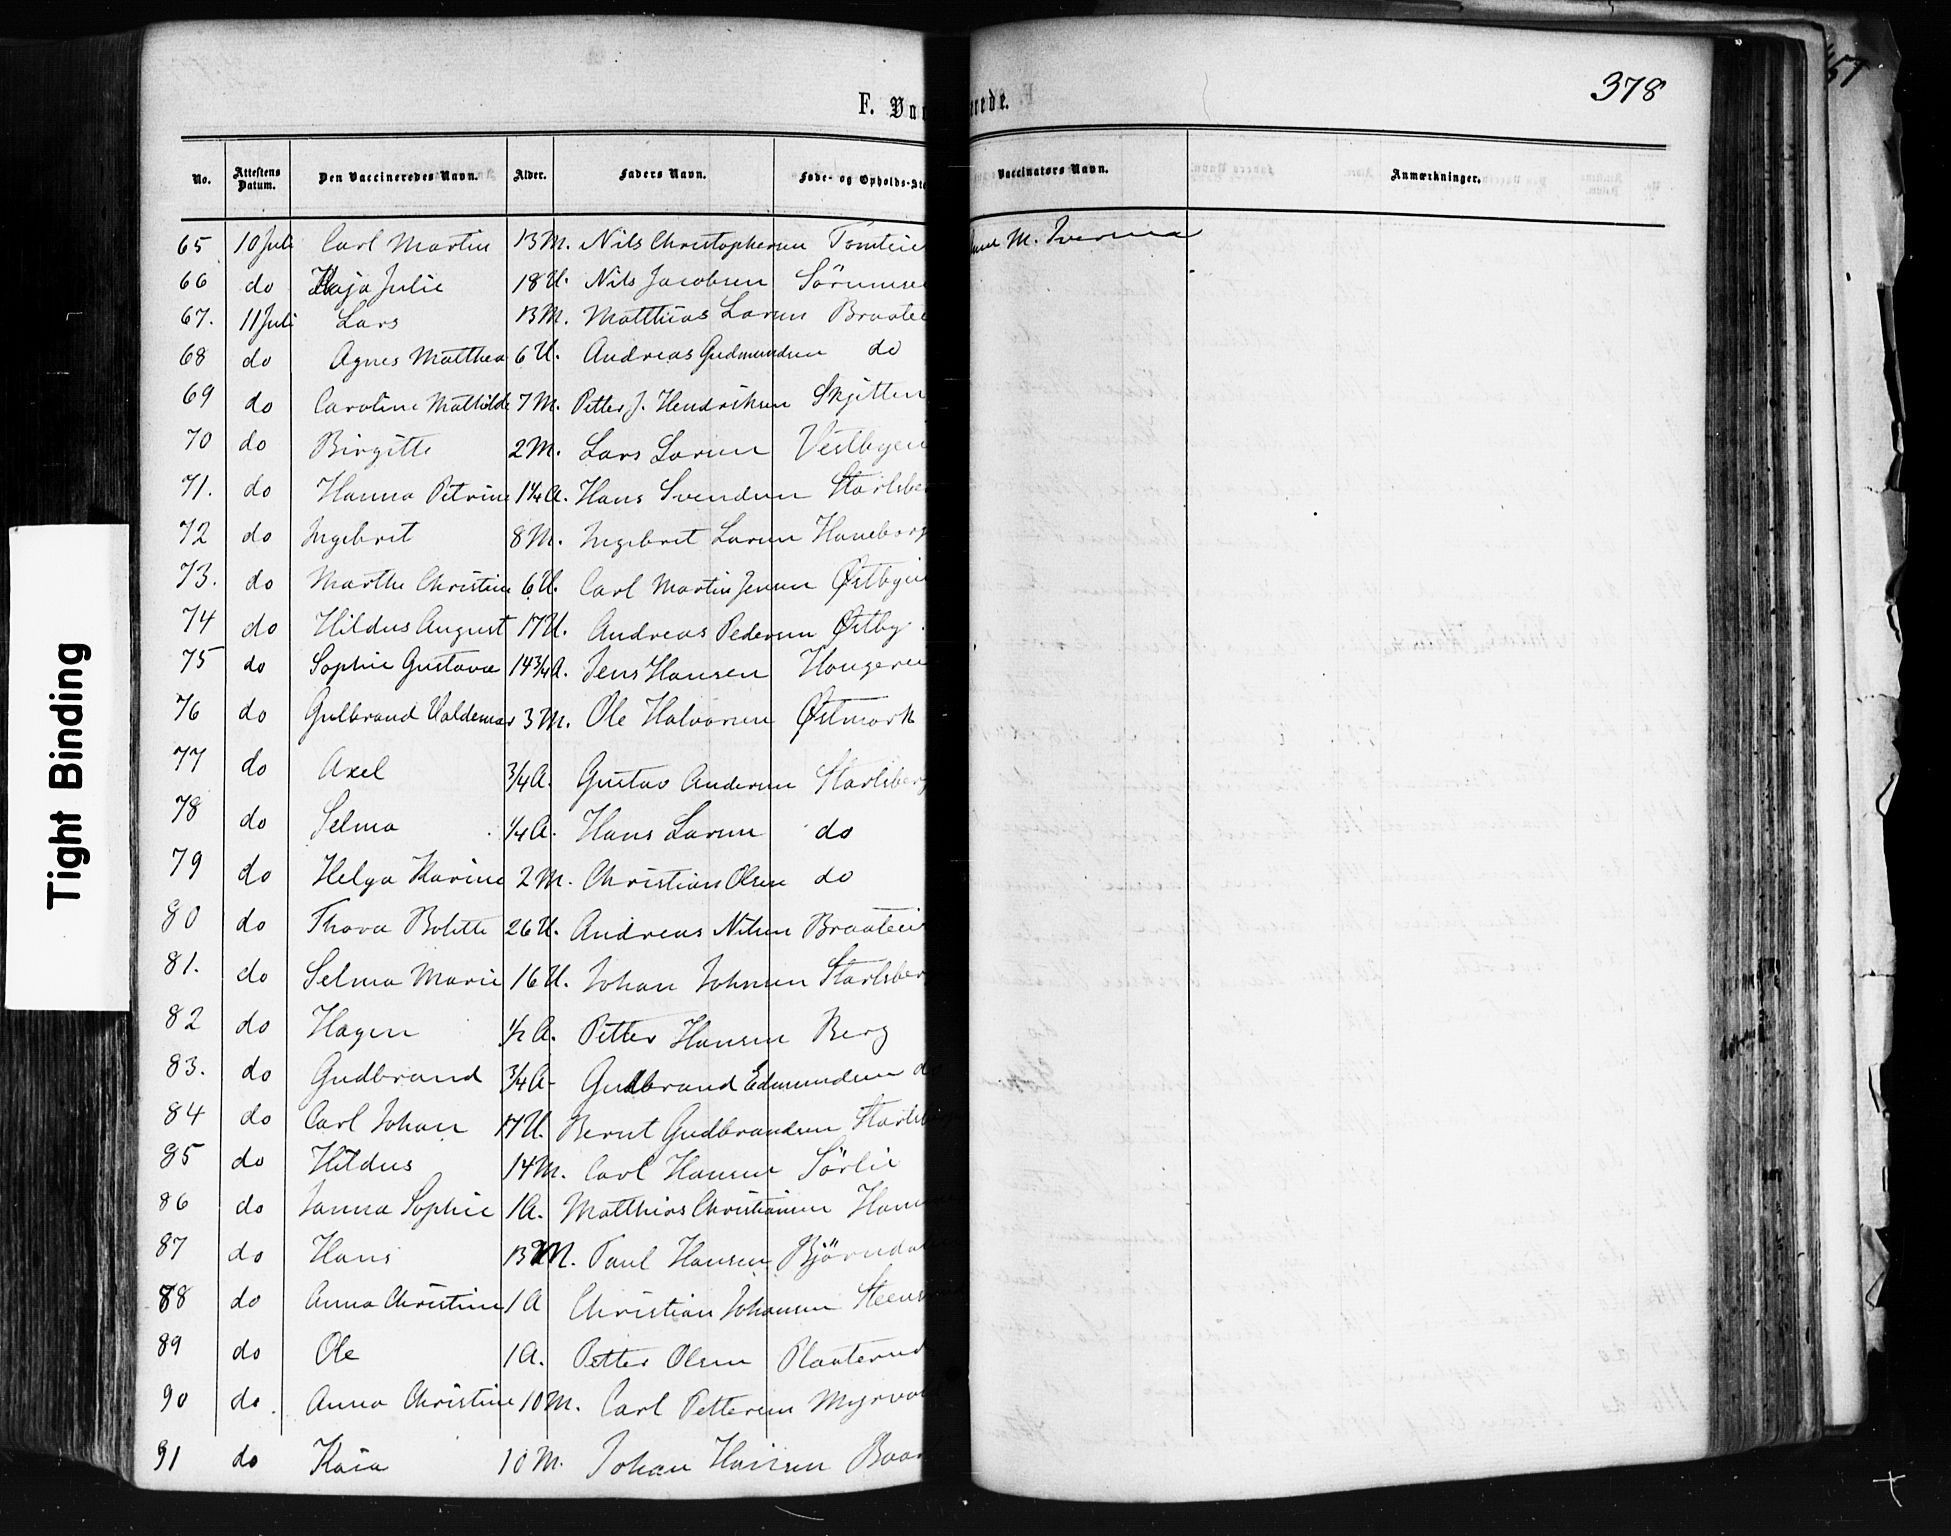 378
F. Vac
erede.
No. Attestens Datum. Den Vaccineredes Navn. Alder. Faders Navn. Føde- og Opholds-Ste Vaccinators Navn. Anmærkninger.
65 10 Juli Carl Martin 13 M. Nils Christophersen Tomtei M. Iversen
66 do Kaja Julie 18 U. Nils Jacobsen Sörumse
67. 11 Juli Lars 13 M. Matthias Larsen Braatei
68 do Agnes Matthea 6 U. Andreas Gudmundsen do
69 do Caroline Mathilde 7 M. Petter J. Hendriksen Skjitten
70 do Birgitte 2 M. Lars Larsen Vestbyei
71. do Hanna Petrine 1¼ A. Hans Svendsen Starlsbe
72 do Ingebret 8 M. Ingebret Larsen Haneborg
73. do Marthe Christine 6 U. Carl Martin Jensen Østbyei
74 do Hildus August 17 U. Andreas Pedersen Østby.
75 do Sophie Gustava 14¾ A. Jens Hansen Haugerei
76 do Gulbrand Valdemar 3 M. Ole Halvorsen Østmark
77 do Axel ¾ A. Gustav Andersen Starlsberg
78 do Selma ¼ A. Hans Larsen do
79 do Helga Karine 2 M. Christian Olsen do
80 do Thora Bolette 26 U. Andreas Nilsen Braatei
81. do Selma Marie 16 U. Johan Johnsen Starlsber
82 do Hagen ½ A. Petter Hansen Berg
83. do Gudbrand ¾ A. Gudbrand Edmundsen do
84 do Carl Johan 17 U. Bernt Gudbrandsen Starlsb
85 do Hildus 14 M. Carl Hansen Sörlie
86 do Janna Sophie 1 A. Matthias Christiansen Ham
87 do Hans 13 M. Paul Hansen Bjørnda
88 do Anna Christine 1 A Christian Johansen Steens
89 do Ole 1 A. Petter Olsen Plaaterud
90 do. Anna Christine 10 M. Carl Pettersen Myrvo
91 do Kaia 10 M. Johan Hansen Baa
Tight Binding